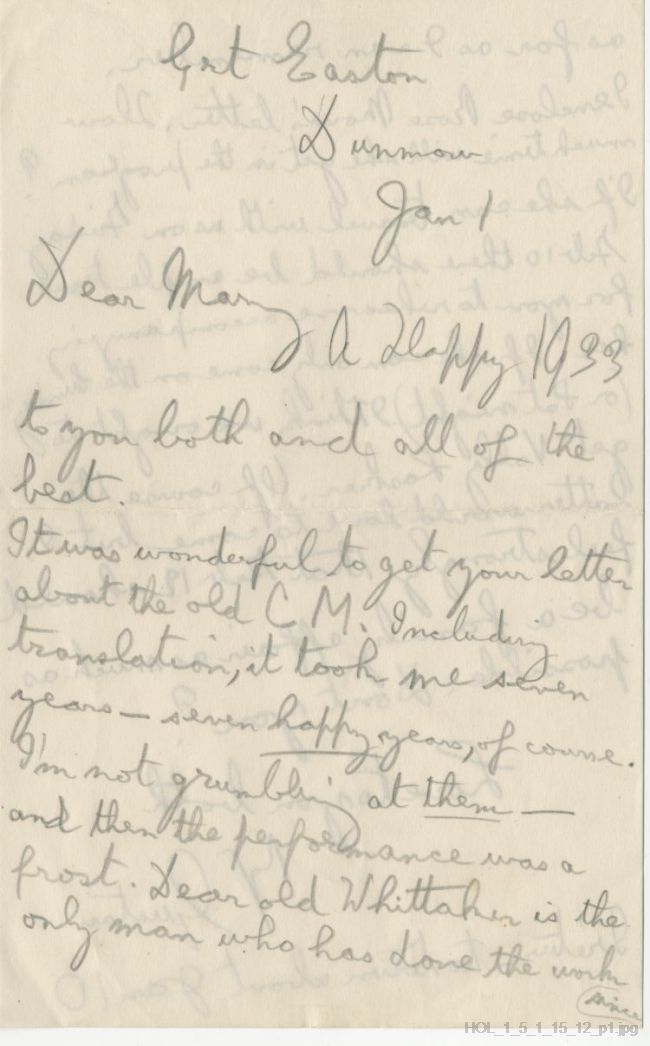 Grt Easton
Dunmow
Jan 1
Dear Mary
A Happy 1933
to you both and all of the
best.
It was wonderful to get your letter
about the old C M. Including
translation, it took me seven
years — seven happy years, of course.
I'm not grumbling at them —
and then the performance was a
frost. Dear old Whittaker is the
only man who has done the work
since
HOL_1_5_1_15_12_p1.jpg